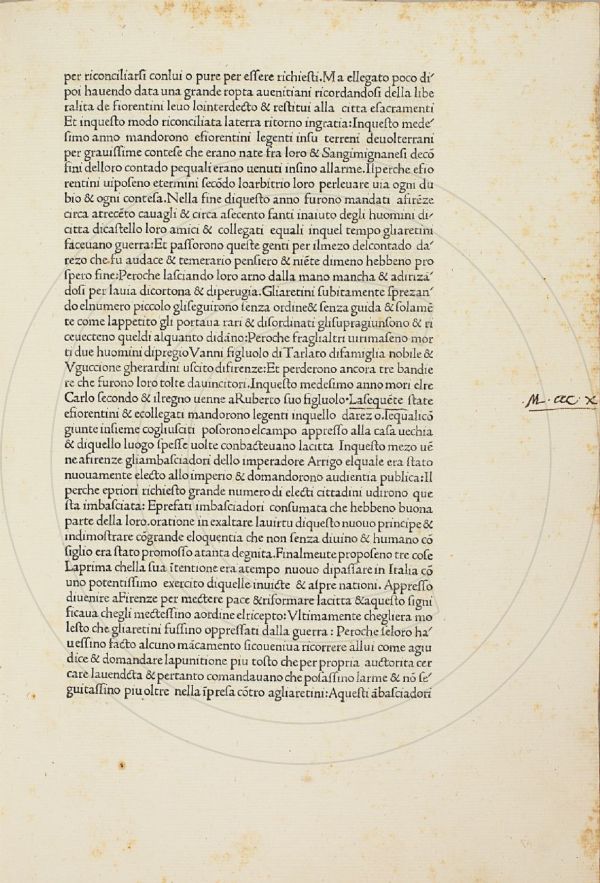 per riconciliarsi conlui o pure per essere richiesti. Ma ellegato poco di⸗
poi hauendo data una grande ropta auenitiani ricordandosi della libe
ralita de fiorentini leuo lointerdecto & restitui alla citta esacramenti
Et inquesto modo riconciliata laterra ritorno ingratia: Inquesto mede⸗
simo anno mandorono efiorentini legenti insu terreni deuolterrani
per grauissime contese che erano nate fra loro & Sangimignanesi decō
fini delloro contado pequali erano uenuti insino allarme. Ilperche efio
rentini uiposeno etermini secōdo loarbitrio loro perleuare uia ogni du
bio & ogni contesa. Nella fine diquesto anno furono mandati afirēze
circa atrecēto cauagli & circa asecento fanti inaiuto degli huomini di⸗
citta dicastello loro amici & collegati equali inquel tempo gliaretini
faceuano guerra: Et passorono queste genti per ilmezo delcontado da⸗
rezo che fu audace & temerario pensiero & niēte dimeno hebbeno pro
spero fine: Peroche lasciando loro arno dalla mano mancha & adirizā⸗
dosi per lauia dicortona & diperugia. Gliaretini subitamente sprezan⸗
do elnumero piccolo gliseguirono senza ordine& senza guida & solamē
te come lappetito gli portaua rari & disordinati glisupragiunsono & ri
ceuecteno queldi alquanto didāno: Peroche fraglialtri uirimaseno mor
ti due huomini dipregio Vanni figluolo di Tarlato difamiglia nobile &
Vguccione gherardini uscito difirenze: Et perderono ancora tre bandie
re che furono loro tolte dauincitori. Inquesto medesimo anno mori elre
Carlo secondo & ilregno uenne aRuberto suo figluolo. Lasequēte state
efiorentini & ecollegati mandorono legenti inquello darezo. Iequalicō
giunte insieme cogliusciti posorono elcampo appresso alla casa uechia
& diquello luogo spesse uolte conbacteuano lacitta Inquesto mezo uē
ne afirenze gliambasciadori dello imperadore Arrigo elquale era stato
nuouamente electo allo imperio & domandorono audientia publica: Il
perche epriori richiesto grande numero di electi cittadini udirono que
sta imbasciata: Eprefati imbasciadori consumata che hebbeno buona
parte della loro. oratione in exaltare lauirtu diquesto nuouo principe &
indimostrare cōgrande eloquentia che non senza diuino & humano cō
siglio era stato promosso atanta degnita. Finalmente proposeno tre cose
Laprima chella sua ītentione era atempo nuouo dipassare in Italia cō
uno potentissimo exercito diquelle inuicte & aspre nationi. Appresso
diuenire aFirenze per mectere pace &riformare lacitta &aquesto signi
ficaua chegli mectessino aordine elricepto: Vltimamente chegliera mo
lesto che gliaretini fussino oppressati dalla guerra : Peroche seloro ha⸗
uessino facto alcuno mācamento sicoueniua ricorrere allui come agiu
dice & domandare lapunitione piu tosto che per propria auctorita cer
care lauendecta & pertanto comandauano che posassino larme & nō se⸗
guitassino piu oltre nella īpresa cōtro agliaretini: Aquesti ābasciadori